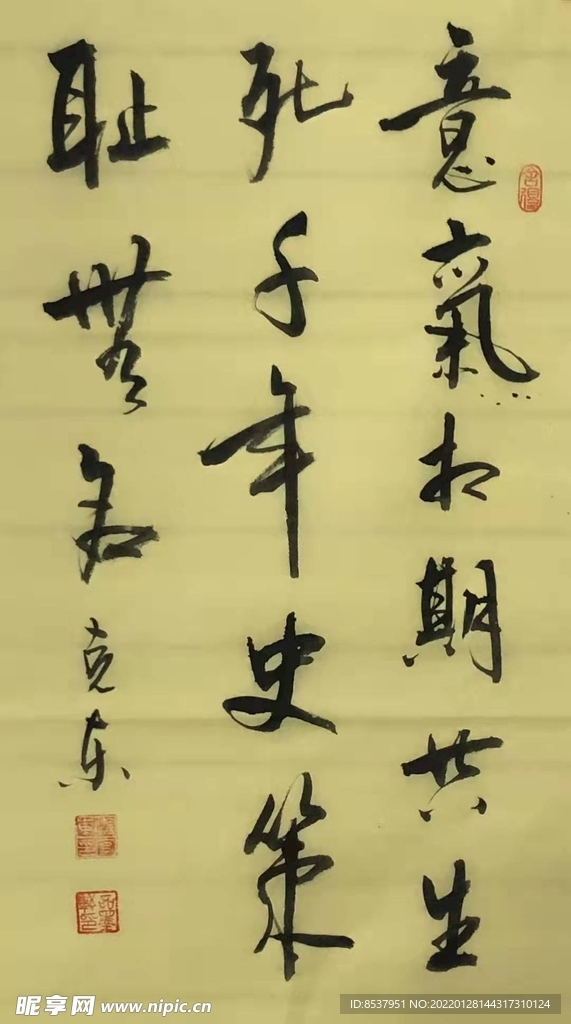 意氣相期共生
死千年史策
耻無名
克東
昵享网 www.nipic.cn
ID:8537951 NO:20220128144317310124